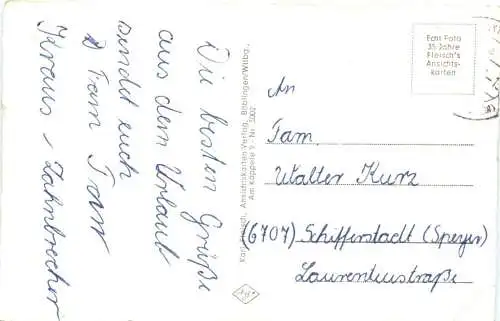 Die besten Grüße
aus dem Urlaub
sendet euch
D Fam Fam
Kraus / Zahnbrecher
Karl Fleisch, Ansichtskarten-Verlag, Böblingen/Wttbg.,
Am Käpperle 9 - Nr. 5002
Echt Foto
35 Jahre
Fleisch's
Ansichts-
karten
An
Fam.
Walter Kurz
(6707) Schifferstadt (Speyer)
Laurentiusstraße